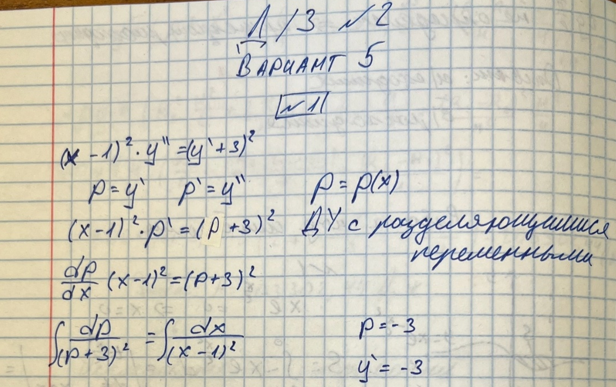 Л/З №2
Вариант 5
№1
(x-1)²·y''=(y'+3)²
p=y' p'=y'' p=p(x)
(x-1)²·p'=(p+3)² ДУ с разделяющимися
переменными
dp/dx (x-1)²=(p+3)²
∫dp/(p+3)² = ∫dx/(x-1)² p=-3
y'=-3